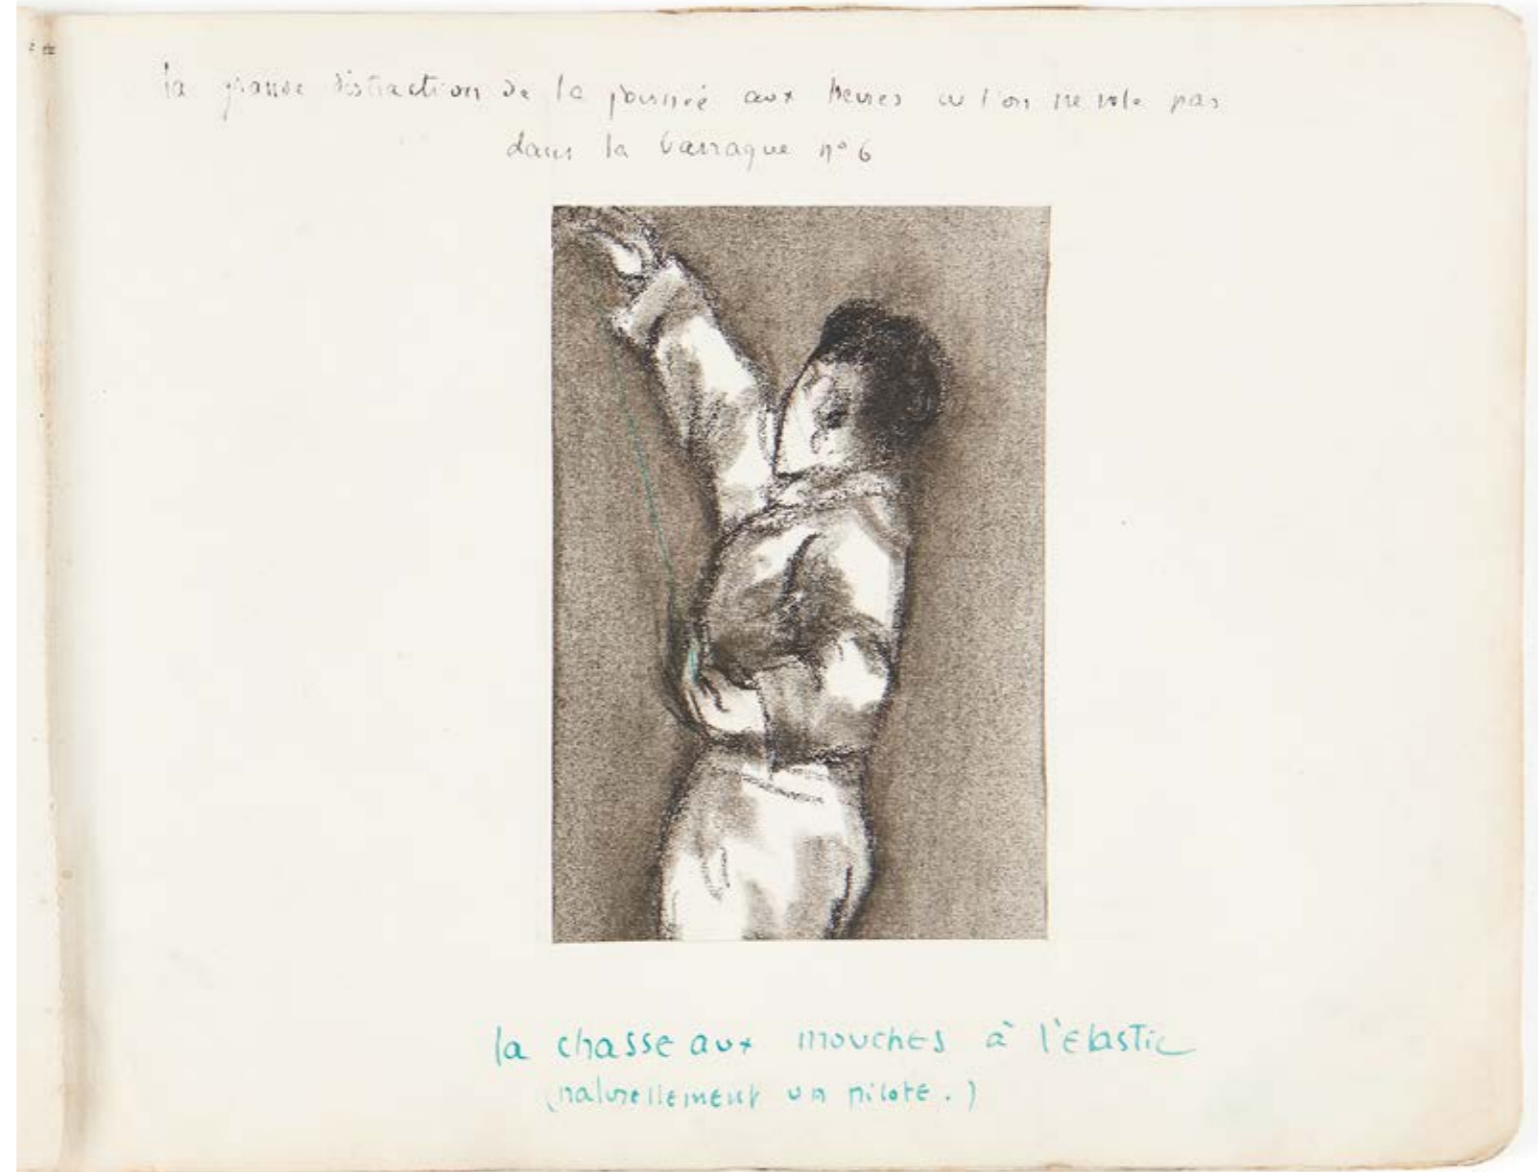 la grande distraction de la journeé aux heures ou l'on ne vole pas
dans la barraque nº 6
la chasse aux mouches à l'élastic
(naturellement un pilote.)